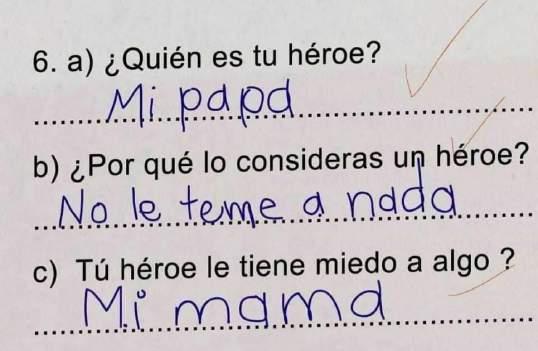 6. a) ¿Quién es tu héroe?
Mi papa
b) ¿Por qué lo consideras un héroe?
No le teme a nada
c) Tú héroe le tiene miedo a algo ?
Mi mama